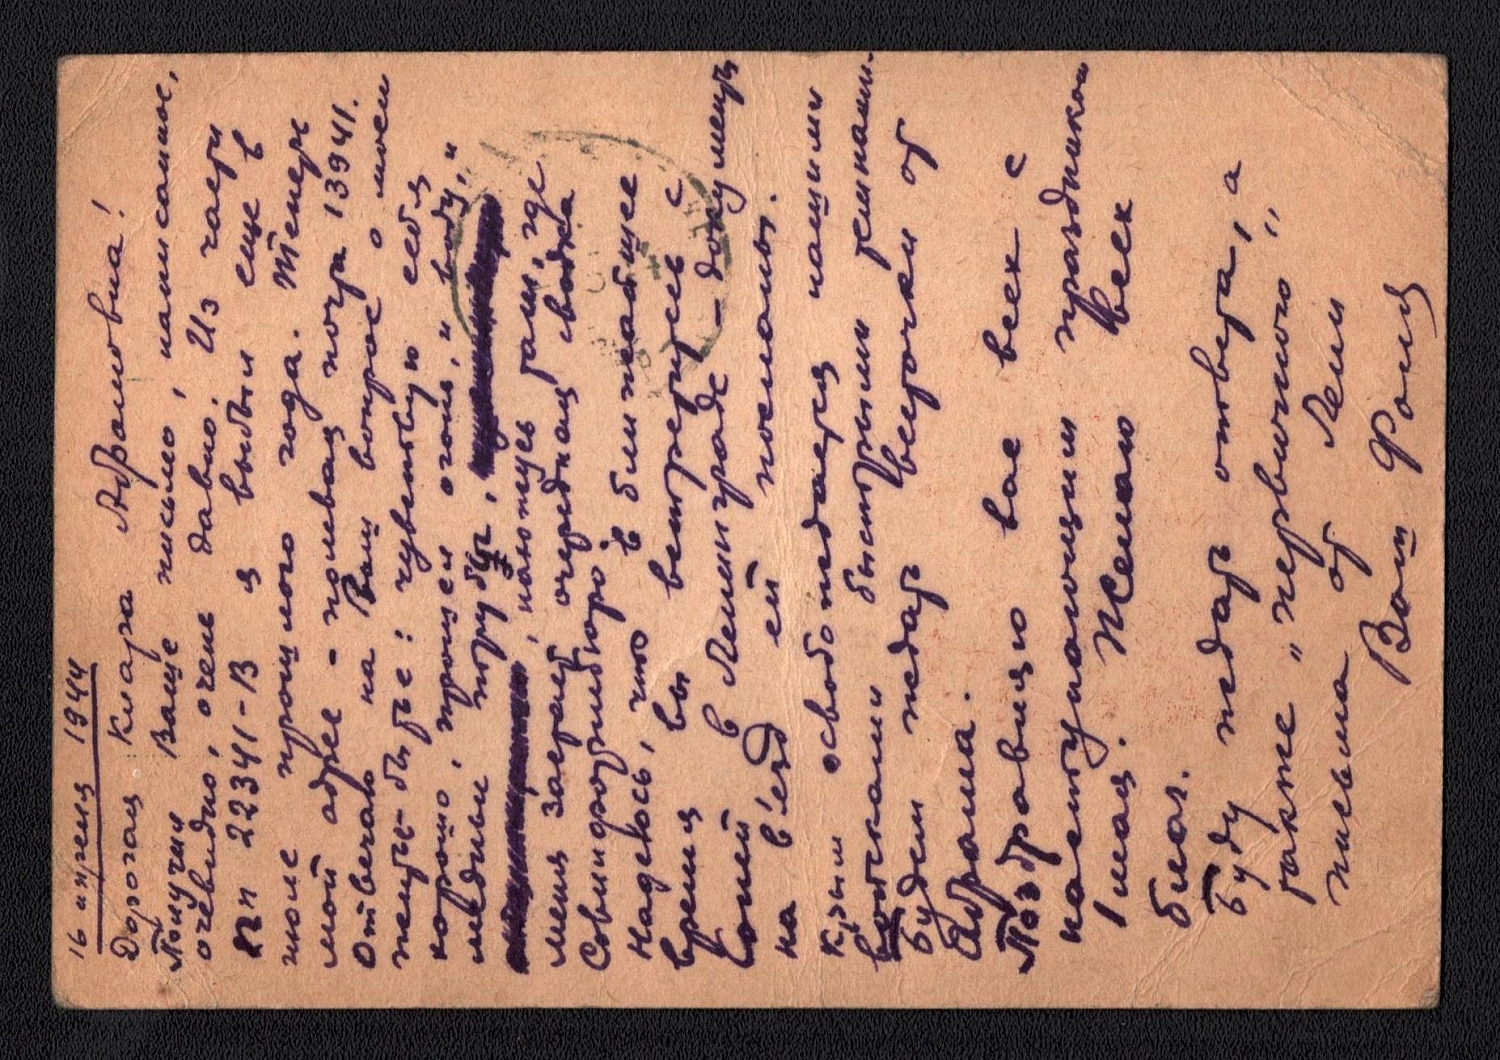 16 апреля 1944
Дорогая Клара Абрамовна!
Получил Ваше письмо, написанное,
очевидно, очень давно. Из части
пп 22341-В я выбыл еще в
июле прошлого года. Теперь
мой адрес - полевая почта 13941.
Отвечаю на Ваш вопрос о моем
житье-бытье: чувствую себя
хорошо, прошел огонь, и воду, и
медные трубы,
, наютусь там, где
меня застает очередная сводка
Совинформбюро.
Надеюсь, что в ближайшее
время вы встретитесь с
Соней в Ленинграде - документ
на в'езд ей посланы.
Крым освобождается нашими
войсками быстрыми темпами.
Будем ждать весточки от
Абрама.
Поздравляю вас всех с
наступающим праздником
1 мая. Желаю всех
благ.
Буду ждать ответа, а
также „первичного“
письма от Лели
Ваш Фоля